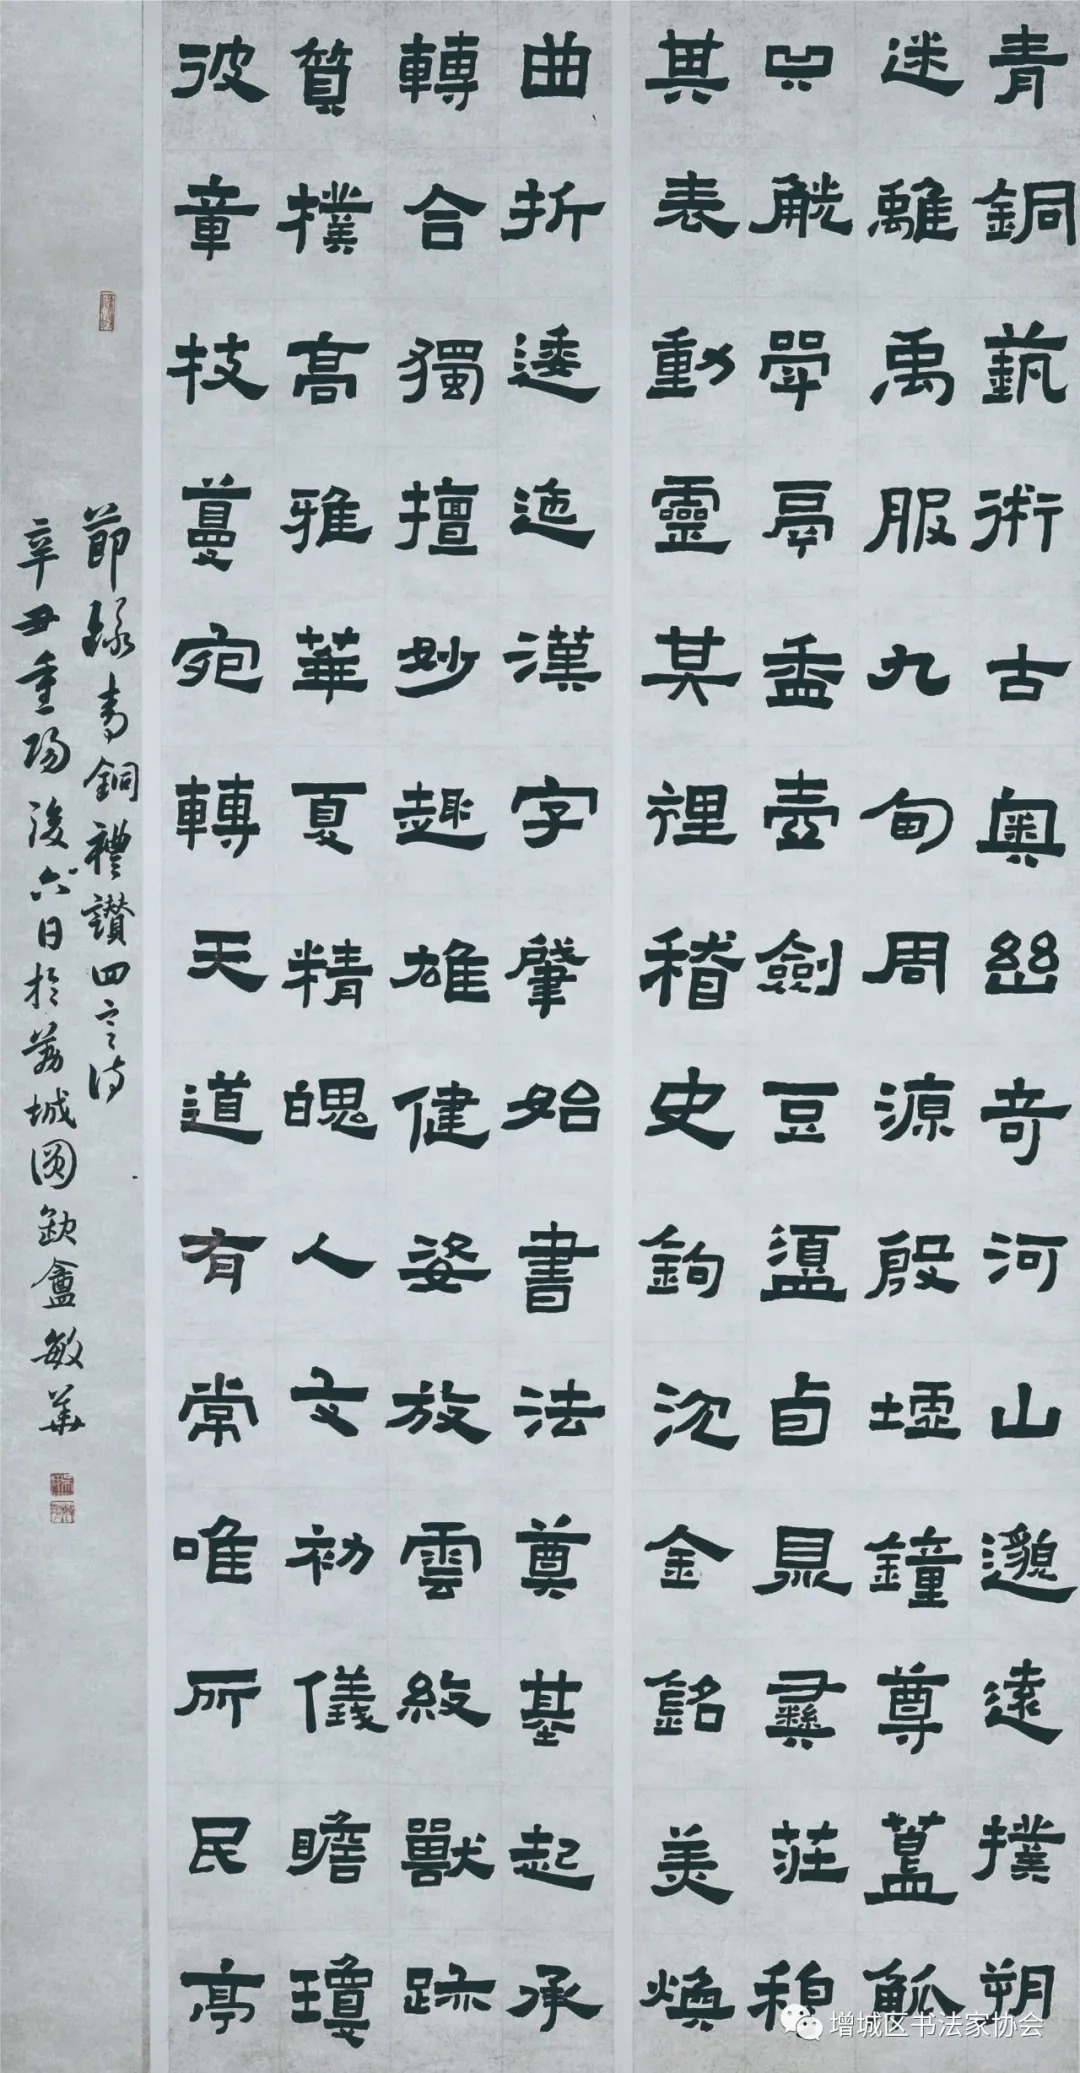 青銅蓺術古奧幽奇河山邈遠撲朔
迷離禹服九甸周源殷墟鐘尊簋觚
觥斝鬲盉壺劍豆盨卣鼎彝莊穆
其表動靈其裡稽史鉤沈金銘美煥
曲折逶迤漢字肇始書法奠基起承
轉合獨擅妙趣雄健姿放雲紋獸跡
質撲高雅華夏精魄人文初儀瞻瓊
彼章技蔓宛轉天道有常唯所民亭
節錄青銅禮讚四言詩
辛丑重陽後六日於荔城圓缽盦敏華
增城区书法家协会